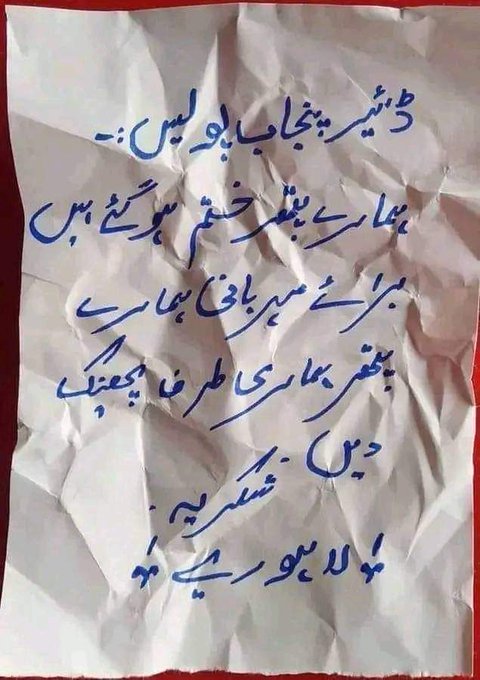 ڈئیر پنجاب پولیس :-
ہمارے پتھر ختم ہو گئے ہیں
برائے مہربانی ہمارے
پتھر ہماری طرف پھینک
دیں .
شکریہ .
لاہوریے